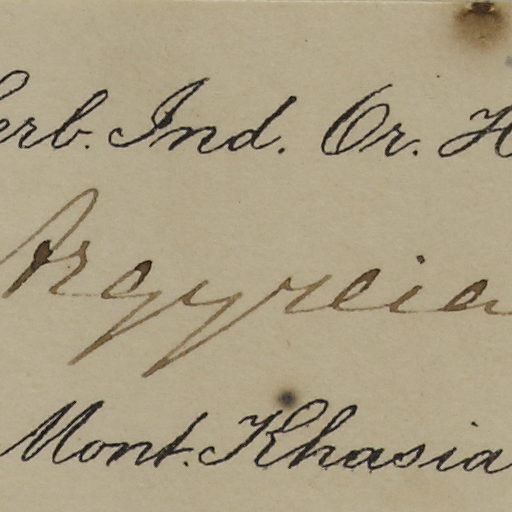 erb. Ind. Or. H
Argyreia
Mont. Khasia